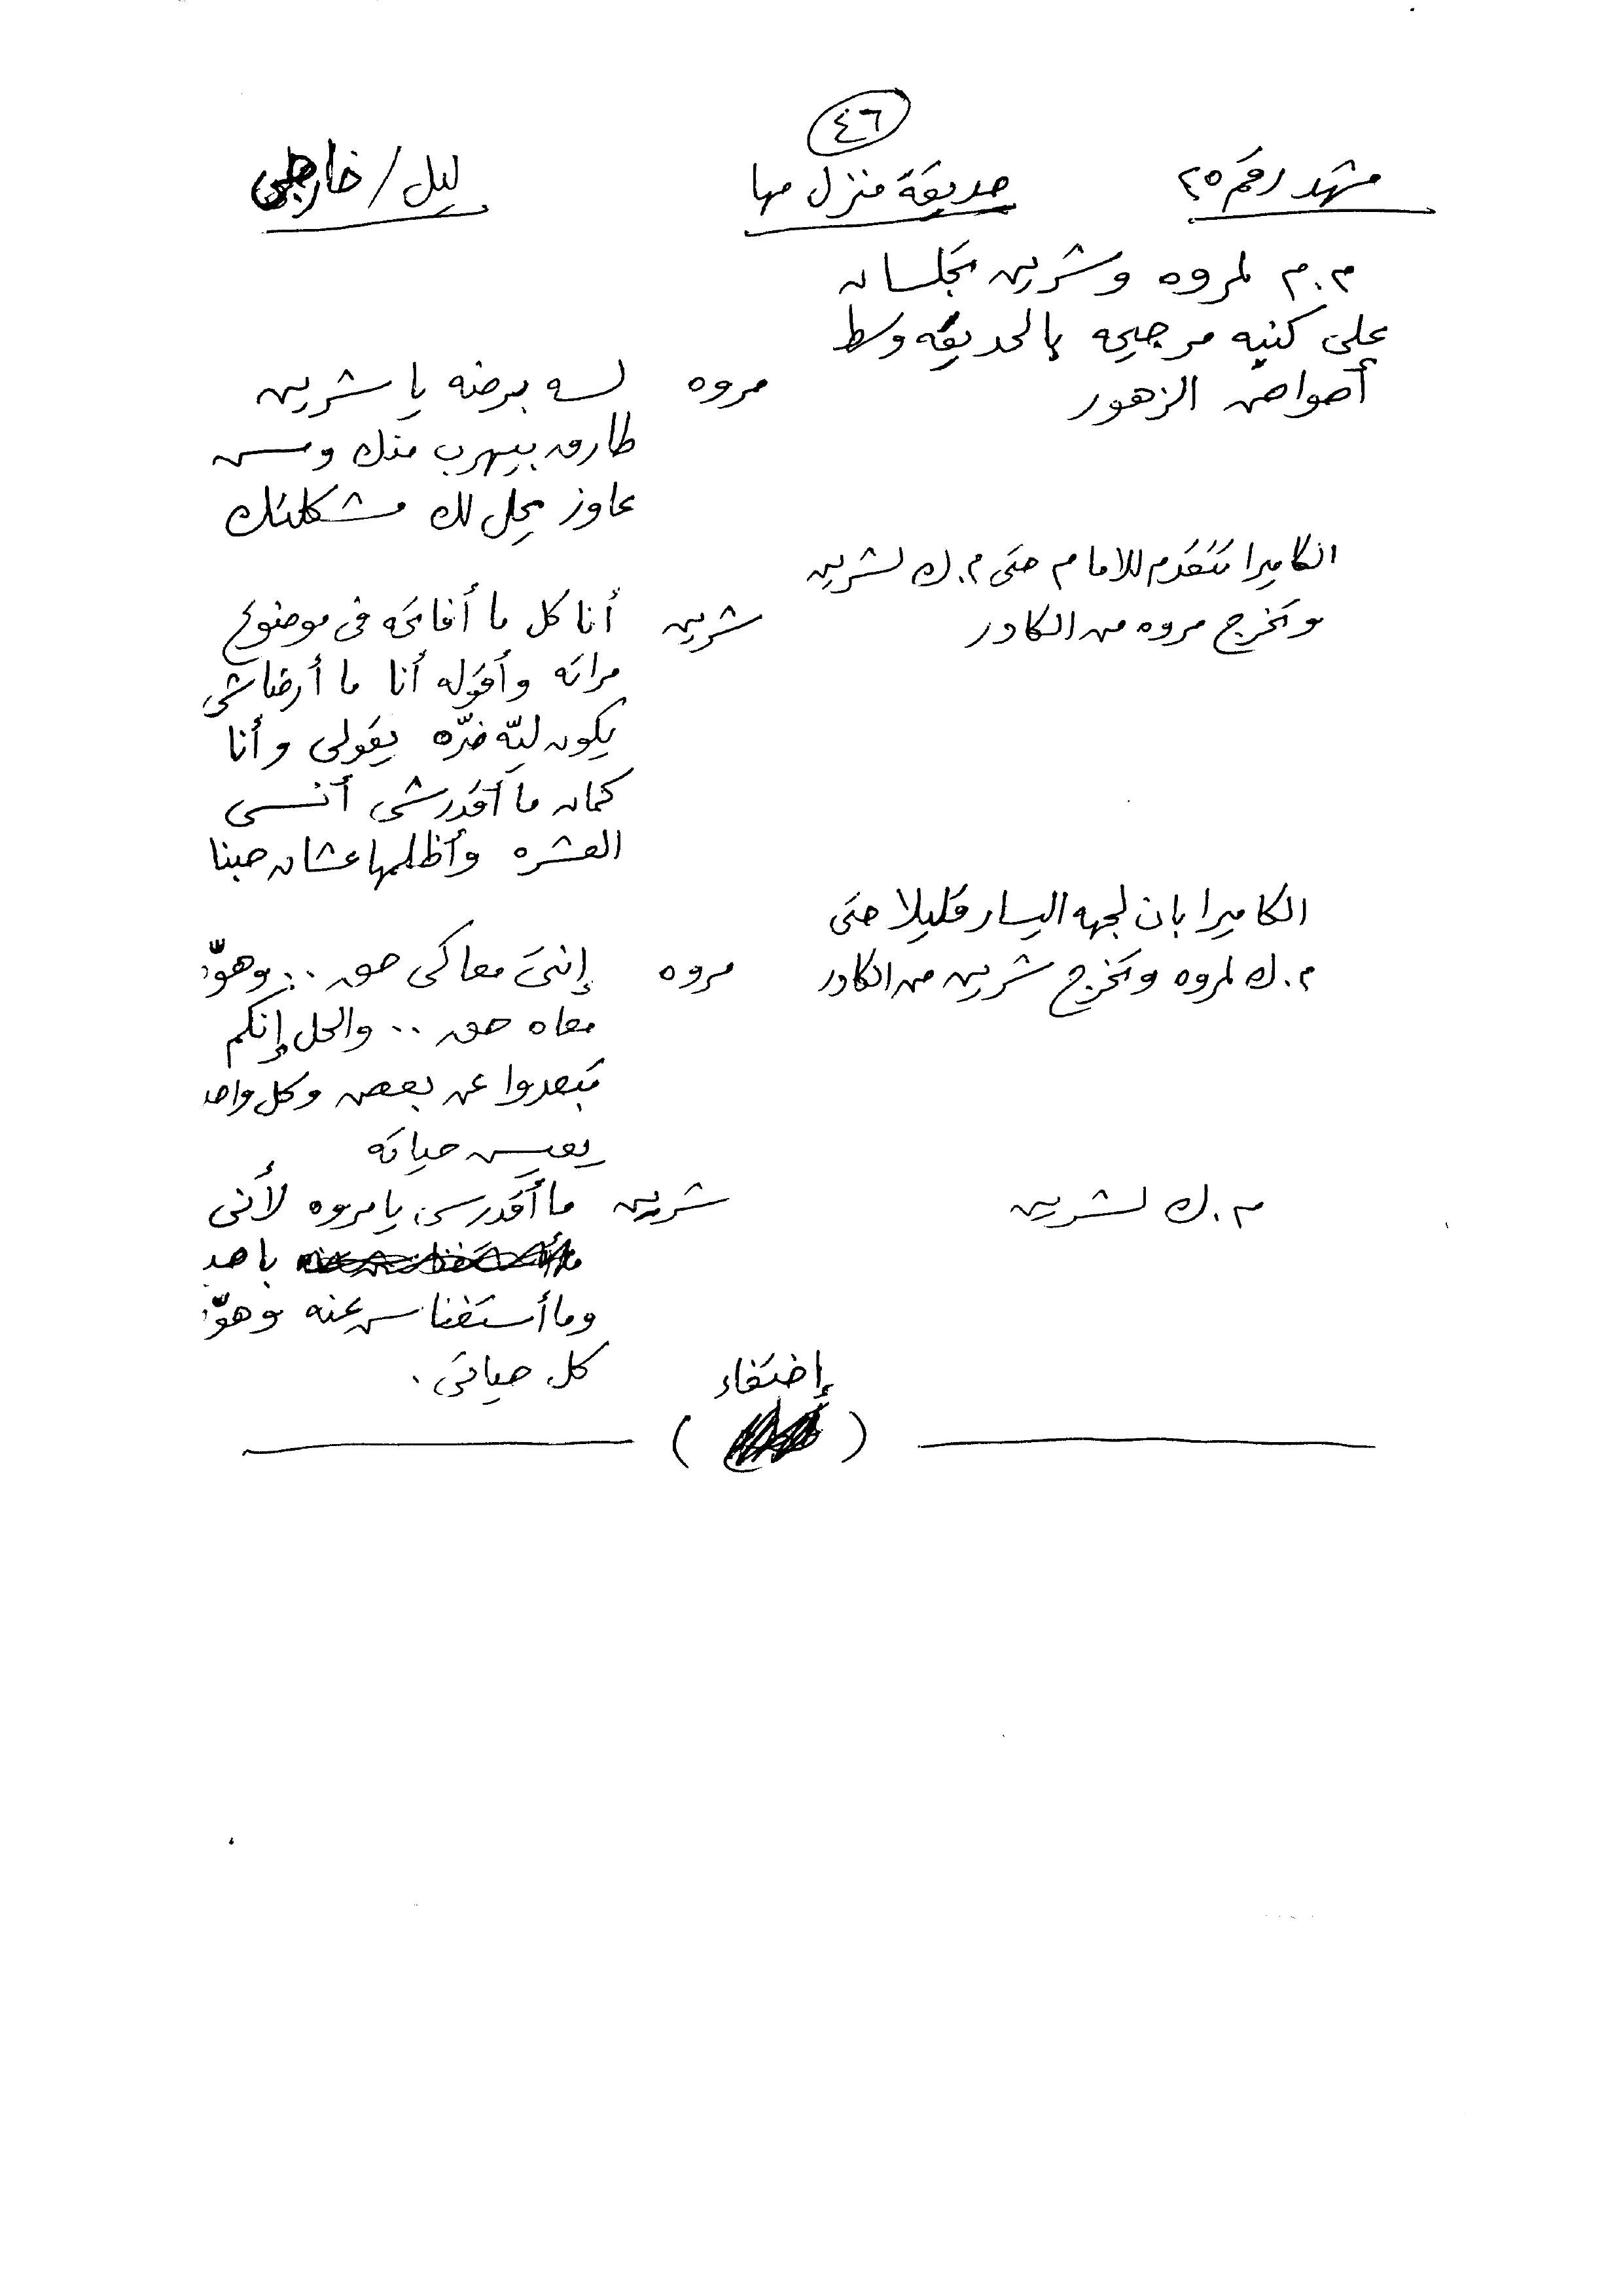 ٤٦
مشهد رقم ٢٥ حديقة منزل مها ليل / خارجى
م.م لمروه وشرين يجلسان
على كنبه مرجيحه بالحديقه وسط
أحواض الزهور
مروه لسه برضه يا شرين
طارق بيهرب منك ومش
عاوز يحل لك مشكلتك
الكاميرا تتقدم للامام حتى م.ك لشرين
وتخرج مروه من الكادر
شرين أنا كل ما أفاتحه فى موضوع
مراته وأقوله أنا ما أرضاش
يكون ليّه ضرّه يقولى وأنا
كمان ما أقدرش أنسى
العشره وأظلمها عشان حبنا
الكاميرا بان لجهه اليسار قليلا حتى
م.ك لمروه وتخرج شرين من الكادر
مروه إنتى معاكى حق .. وهوّ
معاه حق .. والحل إنكم
تبعدوا عن بعض وكل واحد
يعيش حياته
م.ك لشرين
شرين ما أقدرش يا مروه لأنى
باحبه
وما أستغناش عنه وهوّ
كل حياتى .
إختفاء
( )